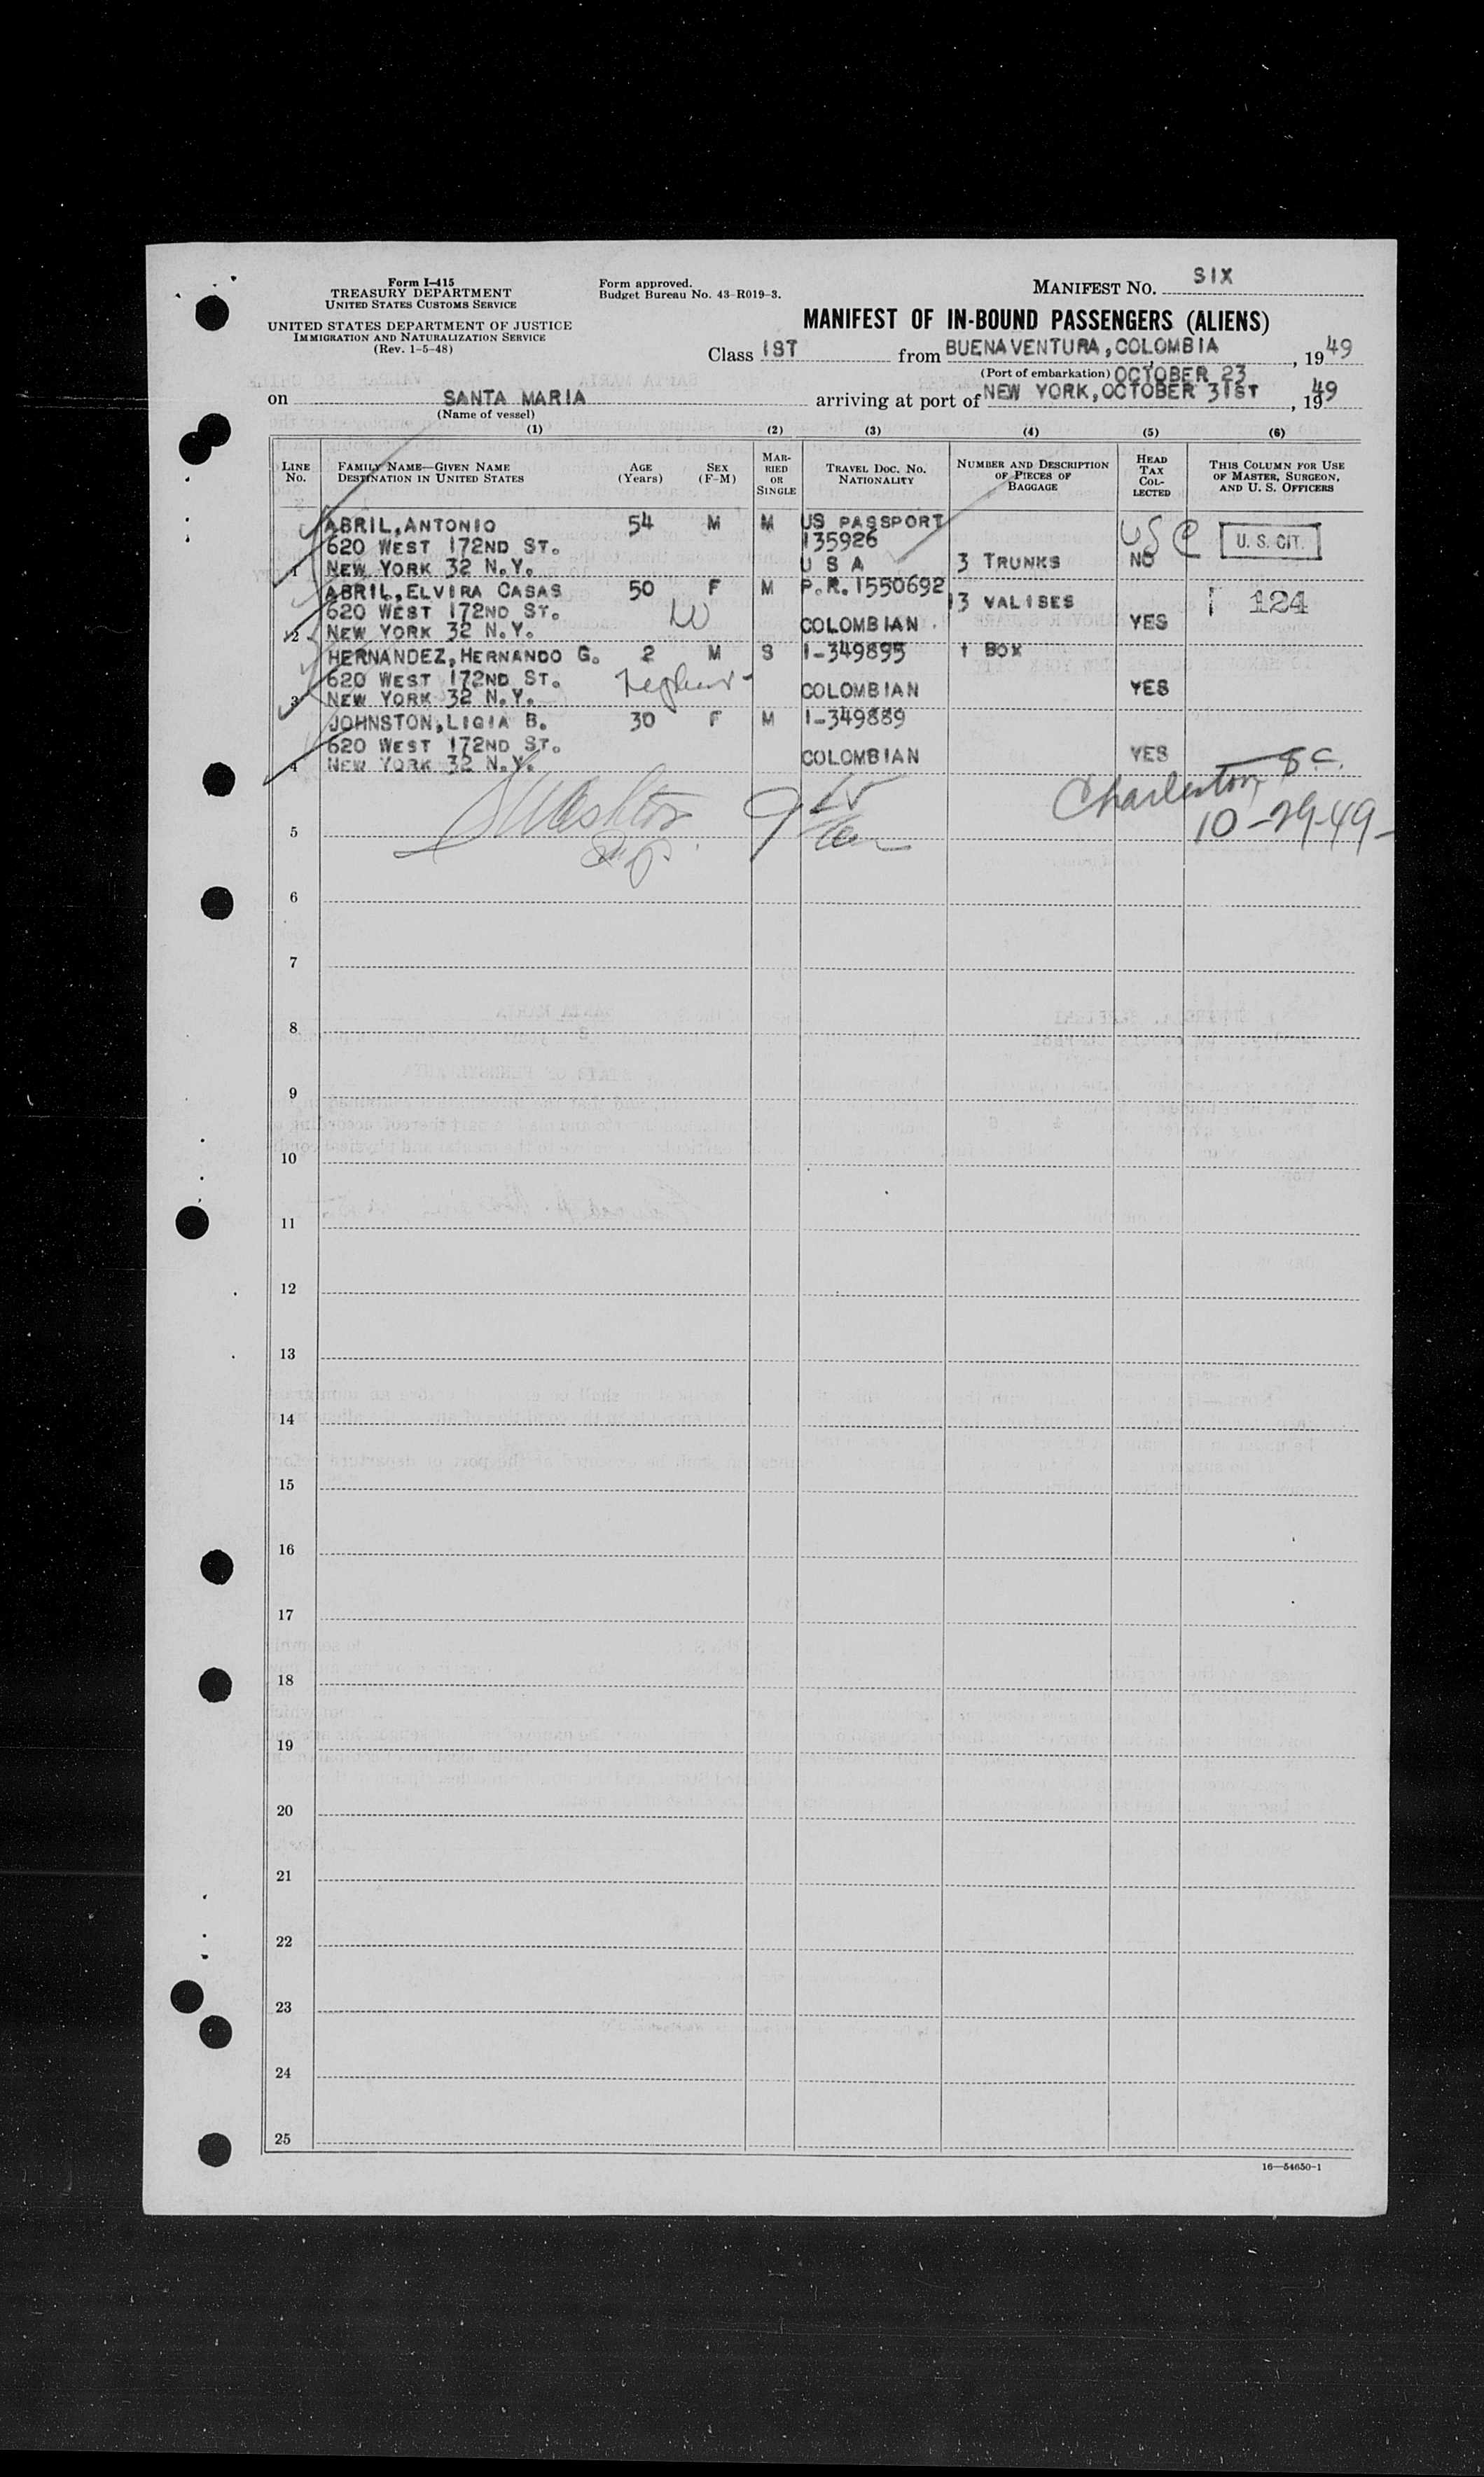 Form I-415
TREASURY DEPARTMENT
UNITED STATES CUSTOMS SERVICE
UNITED STATES DEPARTMENT OF JUSTICE
IMMIGRATION AND NATURALIZATION SERVICE
(Rev. 1-5-48)
Form approved.
Budget Bureau No. 43-R019-3.
MANIFEST NO. SIX
MANIFEST OF IN-BOUND PASSENGERS (ALIENS)
Class 1ST from BUENAVENTURA, COLOMBIA, 1949
(Port of embarkation) OCTOBER 23
on SANTA MARIA arriving at port of NEW YORK, OCTOBER 31ST, 1949
(Name of vessel)
(1) (2) (3) (4) (5) (6)
LINE NO. FAMILY NAME—GIVEN NAME DESTINATION IN UNITED STATES AGE (Years) SEX (F-M) MARRIED OR SINGLE TRAVEL DOC. NO. NATIONALITY NUMBER AND DESCRIPTION OF PIECES OF BAGGAGE HEAD TAX COLLECTED THIS COLUMN FOR USE OF MASTER, SURGEON, AND U. S. OFFICERS
ABRIL, ANTONIO 54 M M US PASSPORT USC U. S. CIT.
620 WEST 172ND ST. 135926
1 NEW YORK 32 N.Y. U S A 3 TRUNKS NO
ABRIL, ELVIRA CASAS 50 F M P.R. 1550692 124
620 WEST 172ND ST. W 13 VALISES
2 NEW YORK 32 N.Y. COLOMBIAN. YES
HERNANDEZ, HERNANDO G. 2 M S I-349895 1 BOX
620 WEST 172ND ST. nephew
3 NEW YORK 32 N.Y. COLOMBIAN YES
JOHNSTON, LIGIA B. 30 F M I-349889
620 WEST 172ND ST.
4 NEW YORK 32 N.Y. COLOMBIAN YES
Charleston, S.C.
10-29-49-
5
6
7
8
9
10
11
12
13
14
15
16
17
18
19
20
21
22
23
24
25
16—54650-1